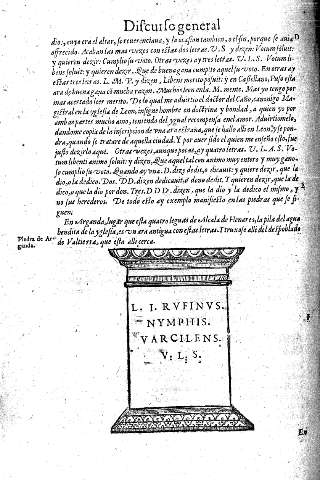 Discurso general
dio, cuya era el altar, se reuerenciaua, y la sin, porque se auia
ofrecido. Acaban las mas vezes con estas dos letras. V. S. y dizen: Votum soluit:
y quieren dezir: Cumplio su voto. Otras vezes ay tres letras. V. L. S. Votum
libens soluit: y quieren dezir, Que de buena gana cumplio aquel su voto. En otras ay
estas tres letras. L. M. P. y dizen, Libens merito posuit: y en Castellano, Puso esta
ara de buena gana cõ mucha razon. Muchos leen en la. M. memo. Mas yo tengo por
mas acertado leer merito. De lo qual me aduirtio el doctor del Caño, canonigo Ma
gistral en la yglesia de Leon, insigne hombre en doctrina y bondad, a quien yo por
ambas partes mucho amo, teniendo del ygual recompensa en el amor. Aduirtiomelo,
dandome copia de la inscripcion de vna ara estraña, que se hallo alli en Leon: y se pon
dra, quando se tratare de aquella ciudad. Y por auer sido el quien me enseño esto, fue
justo dezirlo aqui. Otras vezes, aunque pocas, ay quatro letras. V. L. A. S. Vo
tum libenti animo soluit: y dizen, Que aquel tal con animo muy entero y muy gano-
so cumplio su voto. Quando ay vna. D. dezia, dedit, o dicauit: y quiere dezir, que la
dio, o la dedico. Dos. DD. dizen dedicauit, o dono dedit. Y quieren dezir, que la de
dico, o que la dio por don. Tres. DDD. dizen, que la dio y la dedico el mismo,
y sus herederos. De todo esto ay exemplo manifiesto en las piedras que se si-
guen.
En Arganda, lugar que esta quatro leguas de Alcala de Henares, la pila del agua
Piedra de Ar-
guida.
bendita de la yglesia, es vn ara antigua con estas letras. Truxose alli del despoblado
de Valtierra, que esta alli cerca.
L. I. RVFINVS.
NYMPHIS.
VARCILENS.
V. L. S.
En